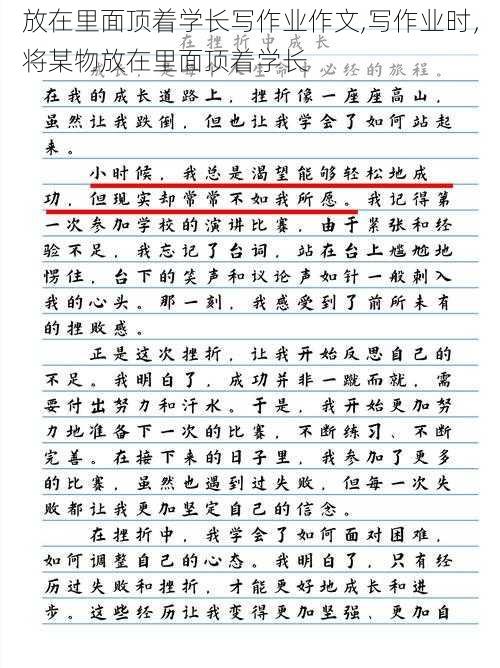 放在里面顶着学长写作业作文,写作业时,
将某物放在里面顶着学长
在挫折中成长
成长，是每个人生命中必经的旅程。
在我的成长道路上，挫折像一座座高山，
虽然让我跌倒，但也让我学会了如何站起
来。
小时候，我总是渴望能够轻松地成
功，但现实却常常不如我所愿。我记得第
一次参加学校的演讲比赛，由于紧张和经
验不足，我忘记了台词，站在台上尴尬地
愣住，台下的笑声和议论声如针一般刺入
我的心头。那一刻，我感受到了前所未有
的挫败感。
正是这次挫折，让我开始反思自己的
不足。我明白了，成功并非一蹴而就，需
要付出努力和汗水。于是，我开始更加努
力地准备下一次的比赛，不断练习、不断
完善。在接下来的日子里，我参加了更多
的比赛，虽然也遇到过失败，但每一次失
败都让我更加坚定自己的信念。
在挫折中，我学会了如何面对困难，
如何调整自己的心态。我明白了，只有经
历过失败和挫折，才能更好地成长和进
步。这些经历让我变得更加坚强、更加自